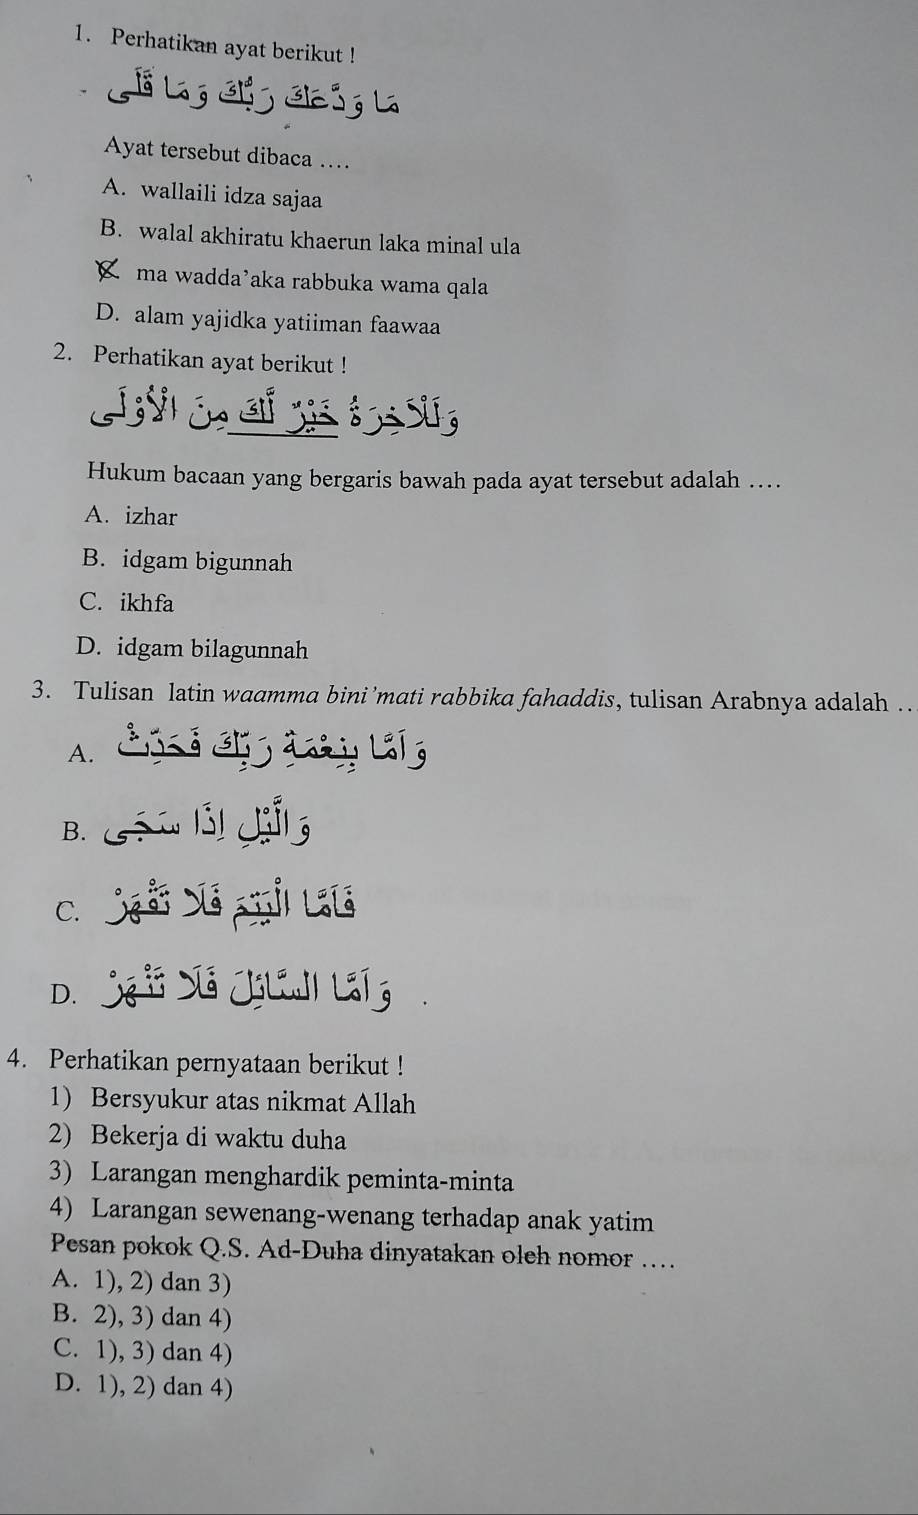 1. Perhatikan ayat berikut !
مَا وَدَّعَكَ رَبُّكَ وَمَا قَلَى
Ayat tersebut dibaca ....
A. wallaili idza sajaa
B. walal akhiratu khaerun laka minal ula
C. ma wadda’aka rabbuka wama qala
D. alam yajidka yatiiman faawaa
2. Perhatikan ayat berikut !
وَلَلْآخِرَةُ خَيْرٌ لَّكَ مِنَ الْأُوْلَى
Hukum bacaan yang bergaris bawah pada ayat tersebut adalah ....
A. izhar
B. idgam bigunnah
C. ikhfa
D. idgam bilagunnah
3. Tulisan latin waamma bini’mati rabbika fahaddis, tulisan Arabnya adalah ..
A. وَأَمَّا بِنِعْمَةِ رَبِّكَ فَحَدِّثْ
B. وَالَّيْلِ إِذَا سَجَى
C. فَأَمَّا الْيَتِيْمَ فَلَا تَقْهَرْ
D. وَأَمَّا السَّائِلَ فَلَا تَنْهَرْ
4. Perhatikan pernyataan berikut !
1) Bersyukur atas nikmat Allah
2) Bekerja di waktu duha
3) Larangan menghardik peminta-minta
4) Larangan sewenang-wenang terhadap anak yatim
Pesan pokok Q.S. Ad-Duha dinyatakan oleh nomor ....
A. 1), 2) dan 3)
B. 2), 3) dan 4)
C. 1), 3) dan 4)
D. 1), 2) dan 4)